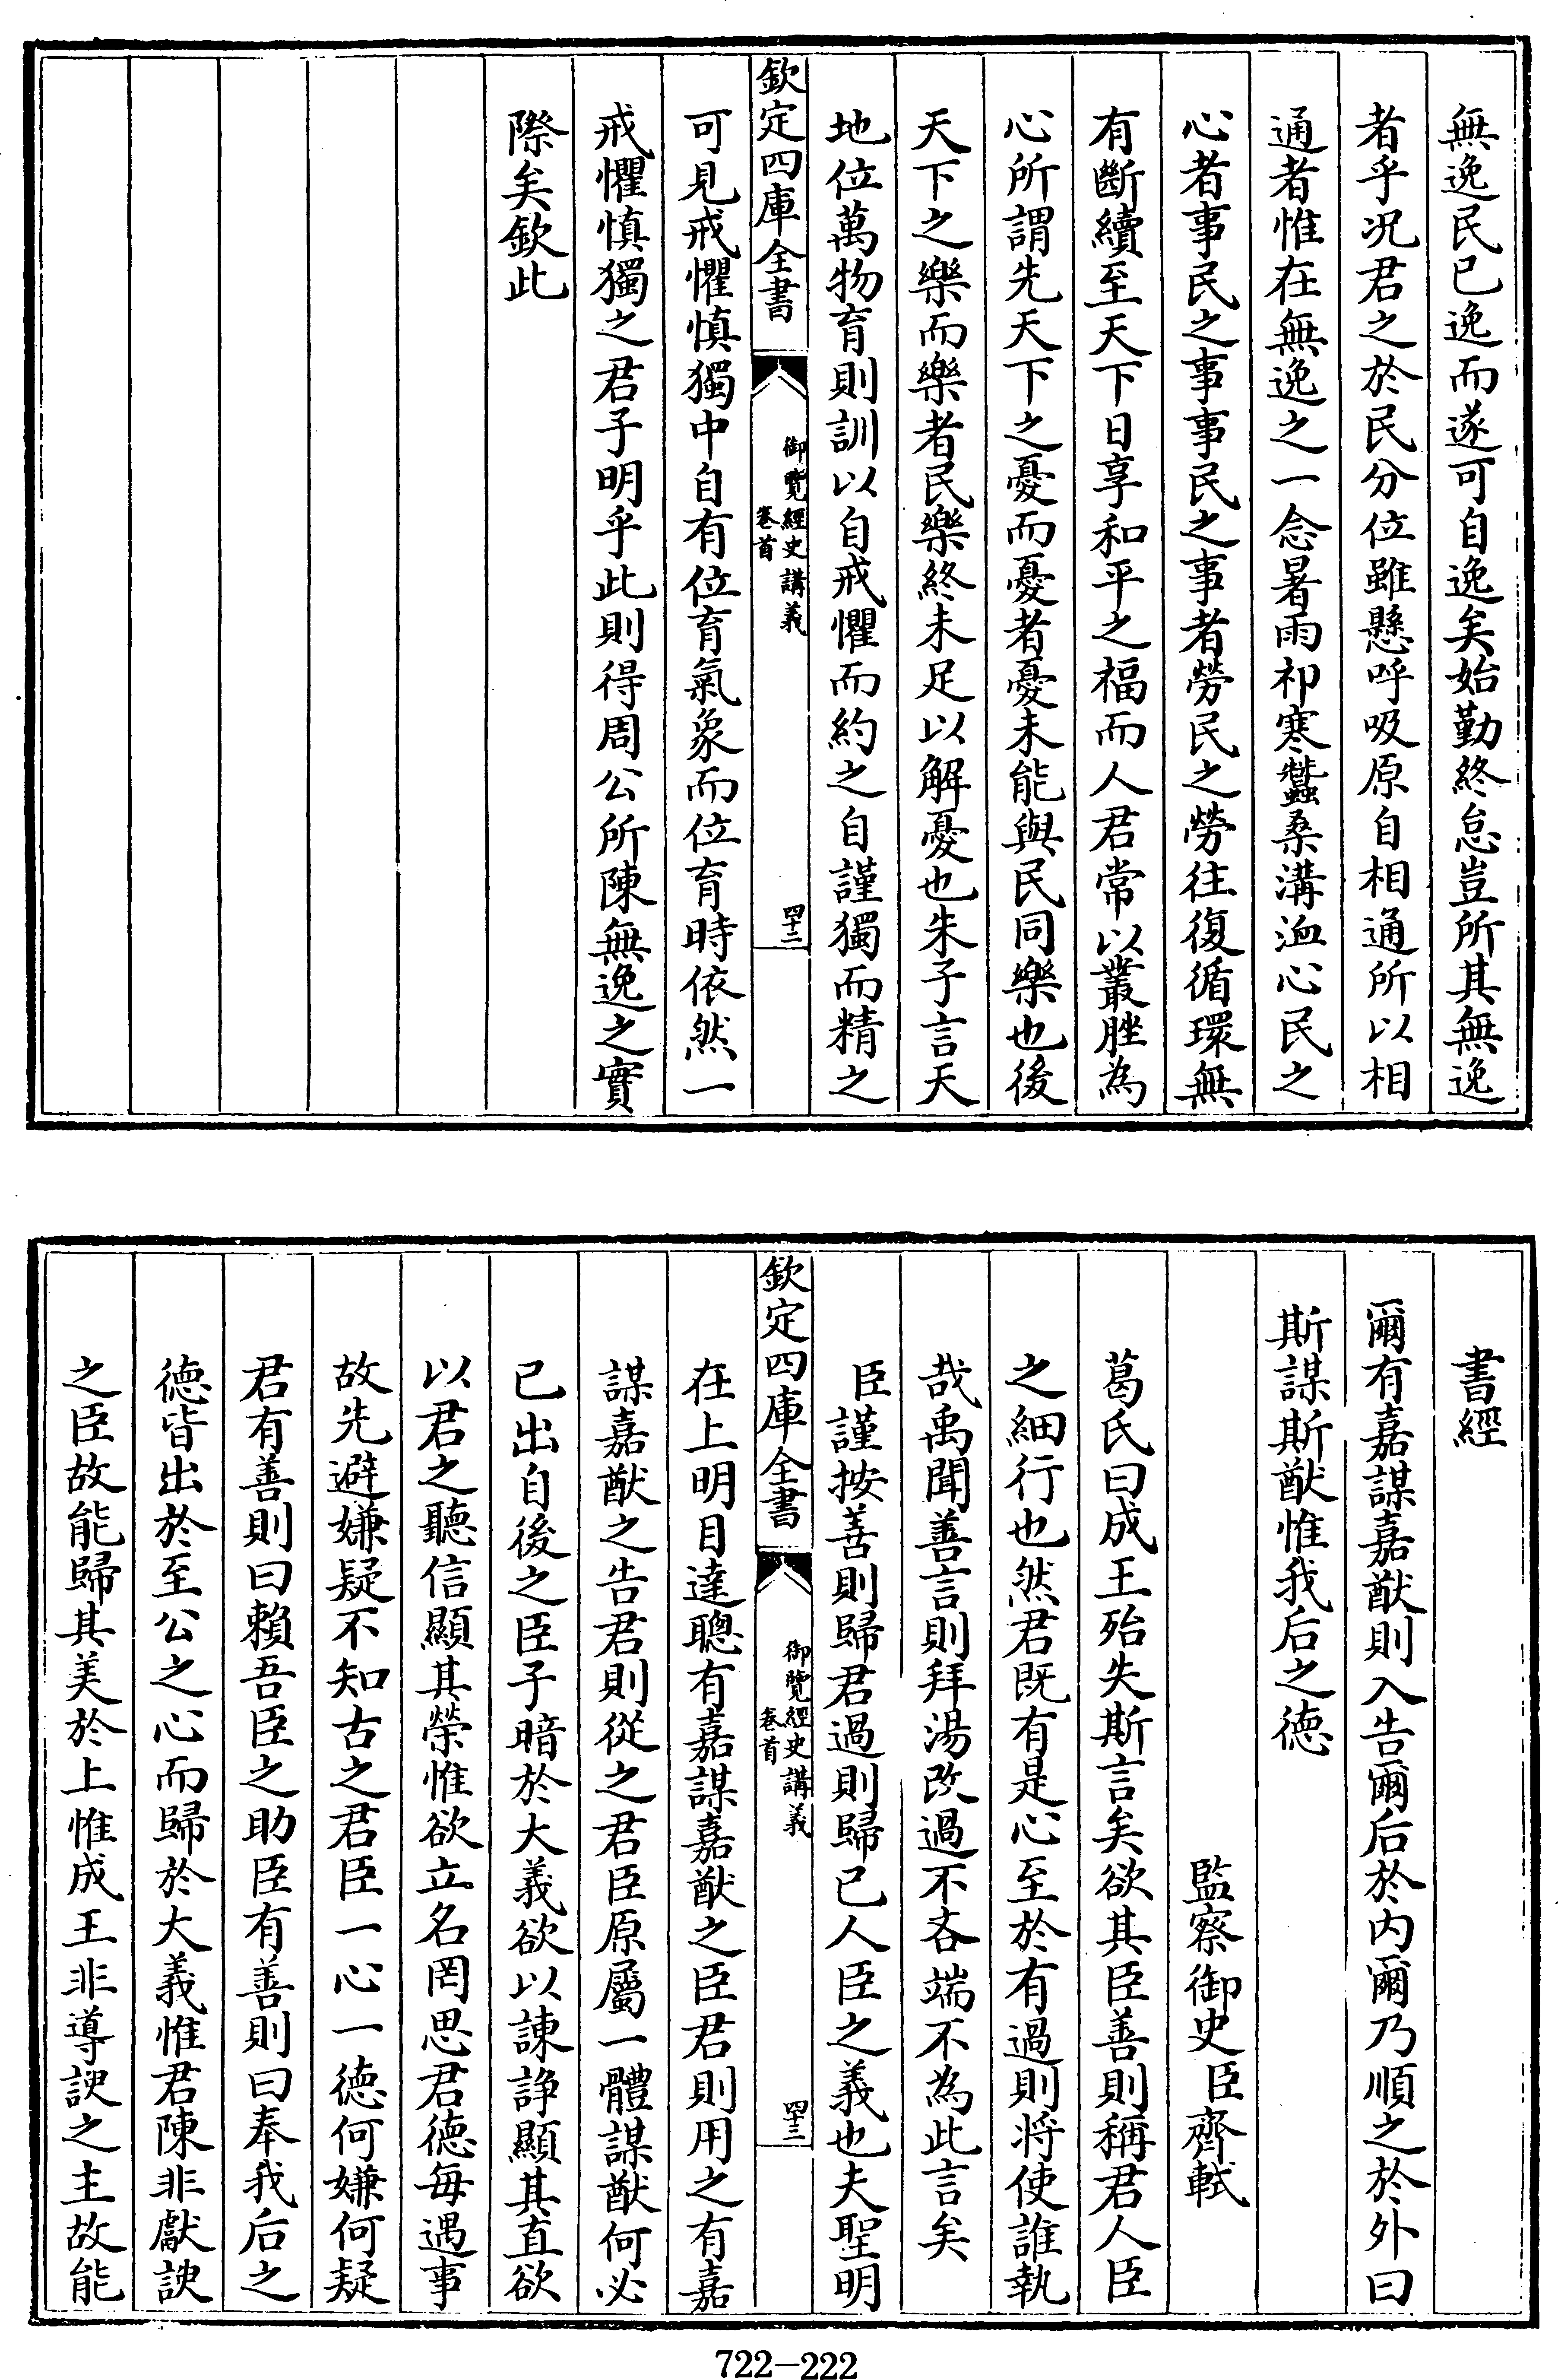 無逸民已逸而遂可自逸矣始勤終怠豈所其無逸
者乎况君之於民分位雖懸呼吸原自相通所以相
通者惟在無逸之一念暑雨祁寒蠶桑溝洫心民之
心者事民之事事民之事者勞民之勞往復循環無
有斷續至天下日享和平之福而人君常以叢脞為
心所謂先天下之憂而憂者憂未能與民同樂也後
天下之樂而樂者民樂終未足以解憂也朱子言天
地位萬物育則訓以自戒懼而約之自謹獨而精之
欽定四庫全書
御覽經史講義
卷首
四十二
可見戒懼慎獨中自有位育氣象而位育時依然一
戒懼慎獨之君子明乎此則得周公所陳無逸之實
際矣欽此
書經
爾有嘉謀嘉猷則入告爾后於内爾乃順之於外曰
斯謀斯猷惟我后之德
監察御史臣齊軾
葛氏曰成王殆失斯言矣欲其臣善則稱君人臣
之細行也然君既有是心至於有過則将使誰執
哉禹聞善言則拜湯改過不吝端不為此言矣
臣謹按善則歸君過則歸已人臣之義也夫聖明
欽定四庫全書
御覽經史講義
卷首
四十三
在上明目達聰有嘉謀嘉猷之臣君則用之有嘉
謀嘉猷之告君則從之君臣原屬一體謀猷何必
已出自後之臣子暗於大義欲以諫諍顯其直欲
以君之聽信顯其榮惟欲立名罔思君德每遇事
故先避嫌疑不知古之君臣一心一德何嫌何疑
君有善則曰賴吾臣之助臣有善則曰奉我后之
德皆出於至公之心而歸於大義惟君陳非獻諛
之臣故能歸其美於上惟成王非導諛之主故能
722-222